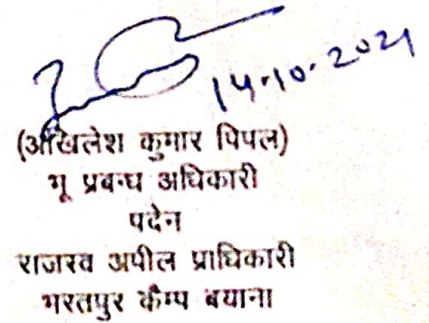 14.10.2021
(अखिलेश कुमार पिपल)
भू प्रबन्ध अधिकारी
पदेन
राजस्व अपील प्राधिकारी
भरतपुर कैम्प बयाना